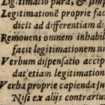 Legitimatio pura, & simpl
Legitimationē proprie fac
dicit ad differentiam d
Remouens omnem inhabil
facit legitimationem in
Verbum dispensatio accip
dat etiam legitimation
Verba proprie capienda
Nisi ex alijs contrariu